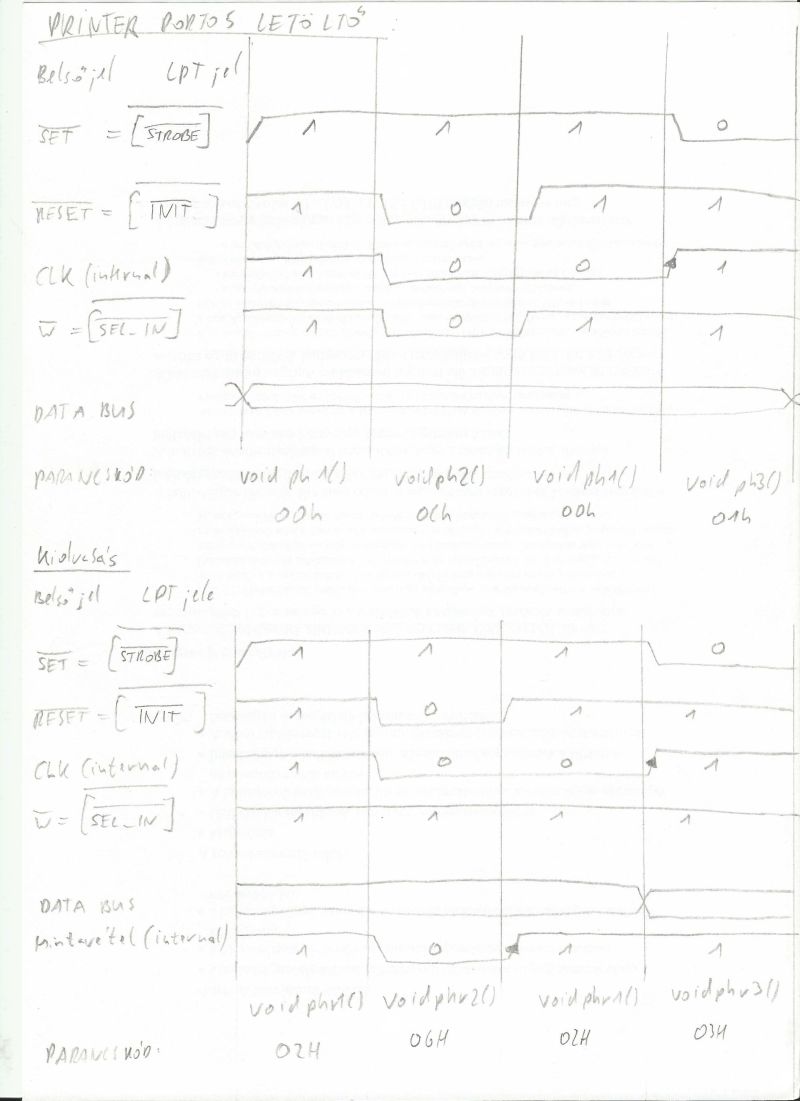 PRINTER PORTOS LETÖLTŐS :
Belső jel LPT jel
SET = [STROBE] 1 1 1 0
RESET = [INIT] 1 0 1 1
CLK (internal) 1 0 0 1
W = [SEL_IN] 1 0 1 1
DATA BUS
PARANCSKÓD: void ph1() void ph2() void ph1() void ph3()
00h 0Ch 00h 01h
Kiolvasás
Belső jel LPT jele
SET = [STROBE] 1 1 1 0
RESET = [INIT] 1 0 1 1
CLK (internal) 1 0 0 1
W = [SEL_IN] 1 1 1 1
DATA BUS
Mintavétel (internal) 1 0 1 1
void phr1() void phr2() void phr1() void phr3()
PARANCSKÓD: 02H 06H 02H 03H